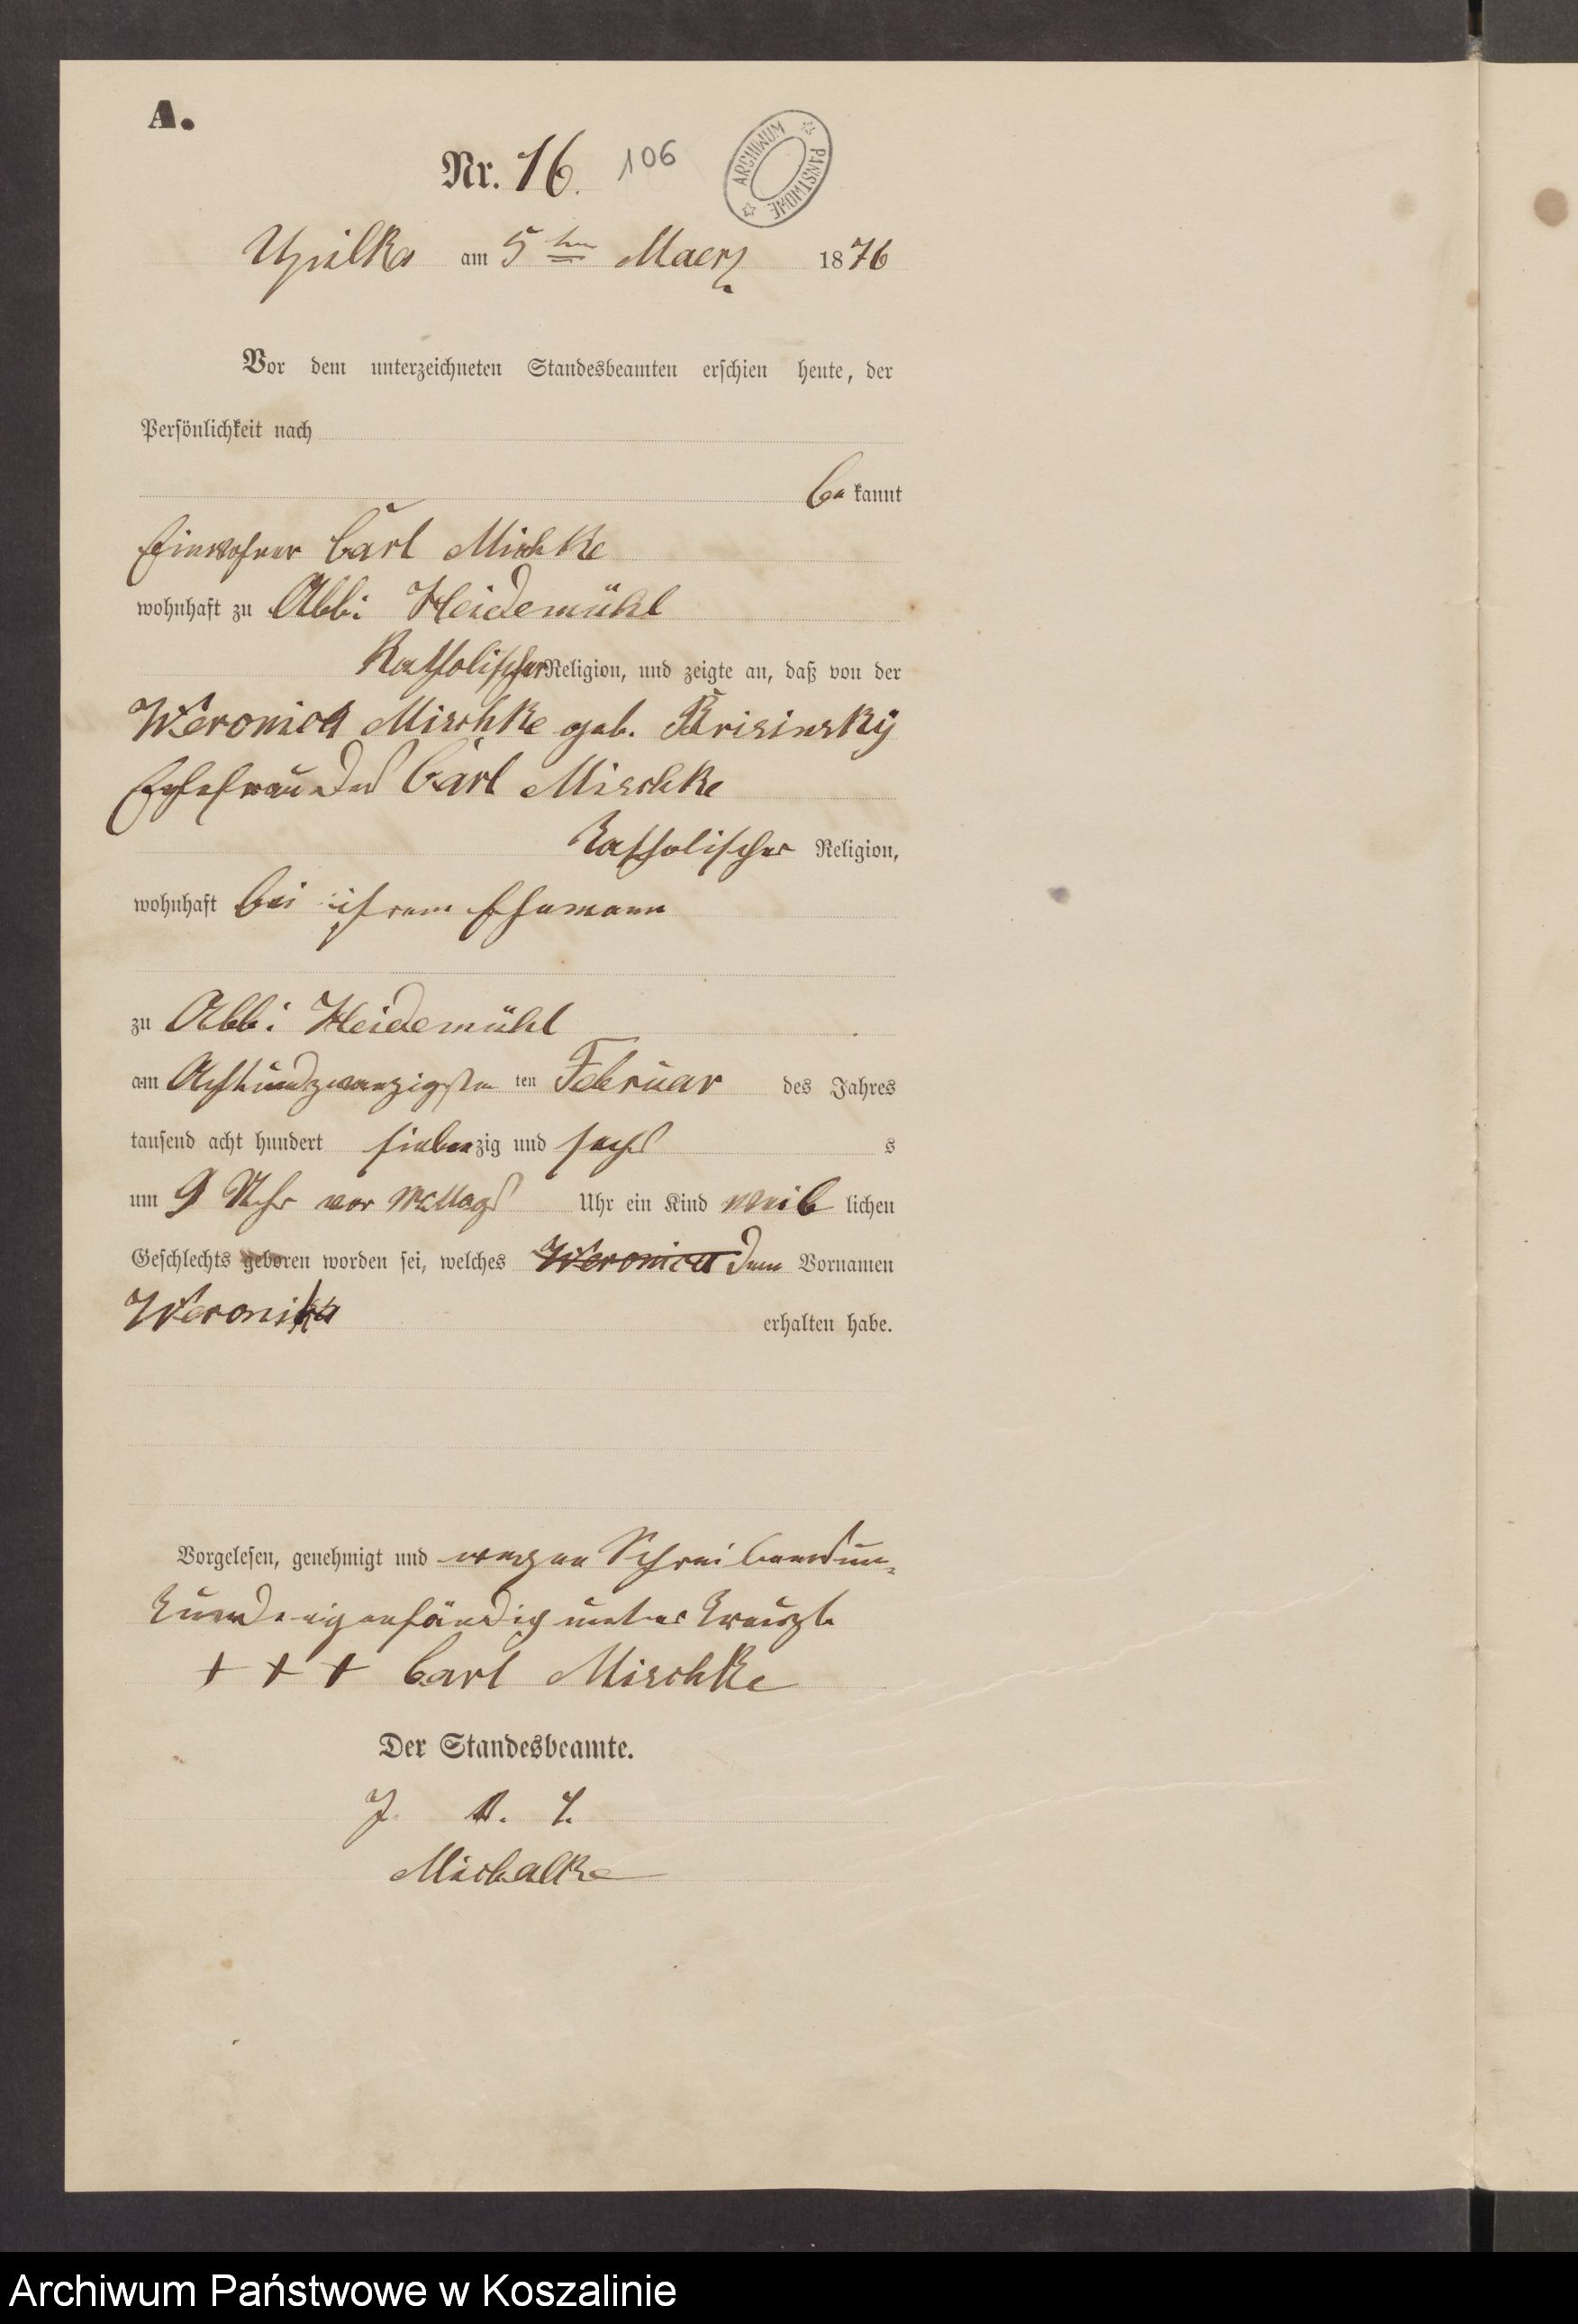 A.
Nr. 16. 106
ARCHIWUM PAŃSTWOWE
Upilka am 5ten Maerz 1876
Vor dem unterzeichneten Standesbeamten erschien heute, der
Persönlichkeit nach
be kannt
Einwohner Carl Mischke
wohnhaft zu Abb: Heidemühl
Katholischer Religion, und zeigte an, daß von der
Weronica Mischke geb.
Ehefrau des Carl Mischke
katholischer Religion,
wohnhaft bei ihrem Ehemann
zu Abb: Heidemühl
am Achtundzwanzigsten ten Februar des Jahres
tausend acht hundert siebenzig und sechs s
um 9 Uhr vor Mittags Uhr ein Kind weib lichen
Geschlechts geboren worden sei, welches Weronica den Vornamen
Weronika erhalten habe.
Vorgelesen, genehmigt und wegen Schreibensun-
kunde eigenhändig unterkreuzt
+ + + Carl Mischke
Der Standesbeamte.
J. V.
Mischalke
Archiwum Państwowe w Koszalinie